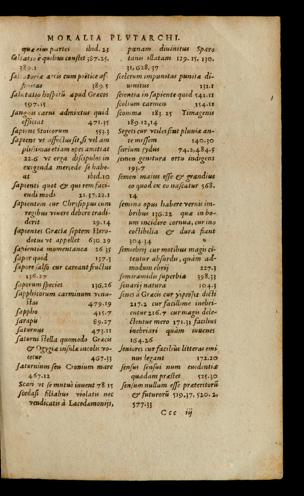 MORALIA PLVTARCHI.
quæ eius partes ibid. 25
Saltatio è quibus constet 387.25.
389.1
Saltatoriæ artis cum poëtice affinitas
389.5
salutatio hospitũ apud Græcos
597.15
sanguis carni admixtus quid
efficiat 471.37
sapiens Stoicorum 553.3
sapiens vt affectus sit, si vel am
plissimas etiam opes amittat
22.6 vt erga discipulos in
exigenda mercede se habeat
ibid.10
sapienti quot & qui rem faciendi
modi 21.37.22.1
sapientem cur Chrysippus cum
regibus viuere debere tradiderit
29.14
sapientes Græcia septem Herodotus
vt appellet 630.29
sapientia momentanea 26.35
sapor quid 137.3
sapore salso cur careant fructus
136.27
saporum species 136.26
sapphicorum carminum venustas
479.19
sappho 415.7
sarapis 69.27
saturnus 473.11
Saturni stella quomodo Græcis
& Ogygiæ insulæ incolis vocetur
467.33
Saturnium seu Cronium mare
467.12
Scari vt se mutuò iuuent 78.15
scedasi filiabus violatis nec
vendicatis à Lacedæmonijs,
pœnam diuinitus Spartanis
illatam 129.15, 130.
31, 628.37
scelerum impunitas punita diuinitus
131.1
scientia in sapiente quid 541.12
scolium carmen 154.11
scomma 183.25 Timagenis
189.12,14
Segeti cur vtiles sint pluuiæ ante
messem 140.30
serium rydus 74.2,484.5
semen genitura ortu indigens
193.7
semen maius esse & grandius
eo quod ex eo nascatur 568.
14
semina opus habere vernis imbribus
136.22 quæ in boum
incidere cornua, cur incoctibilia
& dura fiant
304.34
semiebrij cur motibus magis citentur
absurdis, quàm admodum
ebrij 227.3
semiramidis superbia 398.33
senarij natura 104.3
senes à Græcis cur
217.2 cur facillime inebrientur
216.7 cur magis delectentur
mero 171.33 facilius
inebriari quàm iuuenes
164.26
seniores cur facilius litteras eminus
legant 172.20
sensus sensus num euidentiæ
quædam præstet 525.30
sensum nullum esse præteritorũ
& futurorũ 519.37, 520.2,
577.33
Ccc iij